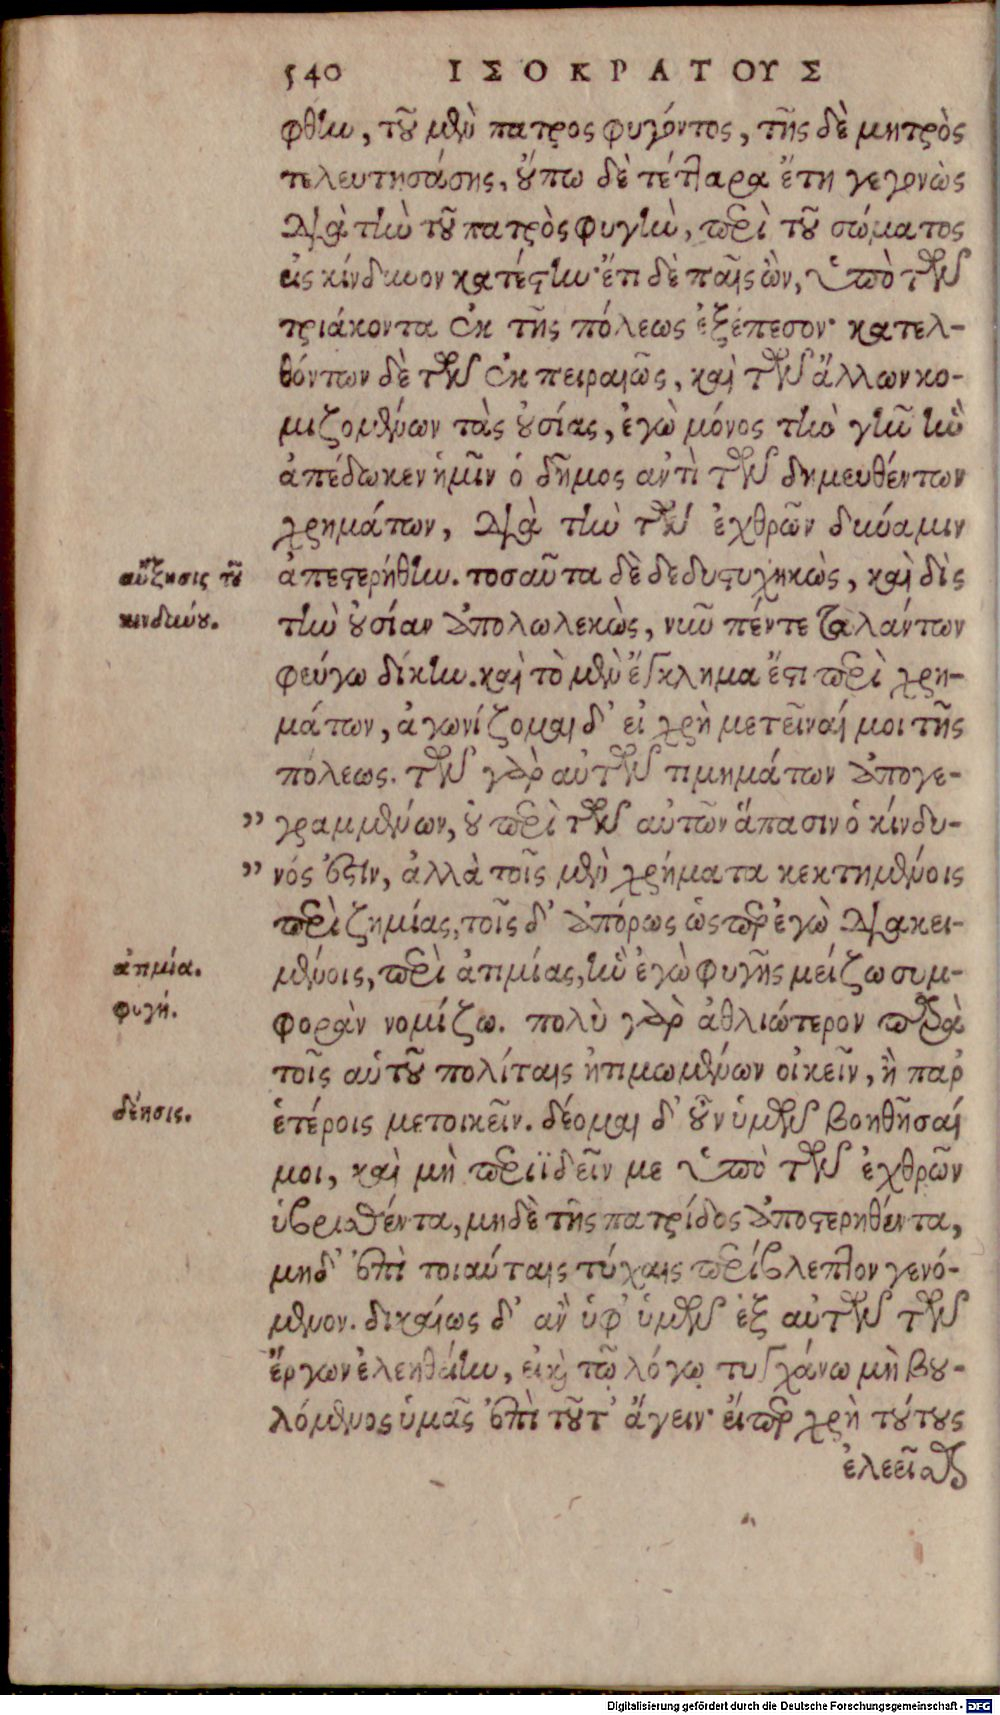 540 ΙΣΟΚΡΑΤΟΥΣ
φθην, τοῦ μὲν πατρὸς φυγόντος, τῆς δὲ μητρὸς
τελευτησάσης, οὔπω δὲ τέτταρα ἔτη γεγονὼς
διὰ τὴν τοῦ πατρὸς φυγὴν, περὶ τοῦ σώματος
εἰς κίνδυνον κατέστην· ἔτι δὲ παῖς ὢν, ὑπὸ τῶν
τριάκοντα ἐκ τῆς πόλεως ἐξέπεσον· κατελ-
θόντων δὲ τῶν ἐκ πειραιῶς, καὶ τῶν ἄλλων κο-
μιζομένων τὰς οὐσίας, ἐγὼ μόνος τὴν γῆν ἣν
ἀπέδωκεν ἡμῖν ὁ δῆμος ἀντὶ τῶν δημευθέντων
χρημάτων, διὰ τὴν τῶν ἐχθρῶν δύναμιν
αὔξησις τοῦ
ἀπεστερήθην. τοσαῦτα δὲ δεδυστυχηκὼς, καὶ δὶς
κινδύνου.
τὴν οὐσίαν ἀπολωλεκὼς, νῦν πέντε ταλάντων
φεύγω δίκην. καὶ τὸ μὲν ἔγκλημα ἔστι περὶ χρη-
μάτων, ἀγωνίζομαι δ' εἰ χρὴ μετεῖναί μοι τῆς
πόλεως. τῶν γὰρ αὐτῶν τιμημάτων ἀπογε-
" γραμμένων, οὐ περὶ τῶν αὐτῶν ἅπασιν ὁ κίνδυ-
" νός ἐστιν, ἀλλὰ τοῖς μὲν χρήματα κεκτημένοις
περὶ ζημίας, τοῖς δ' ἀπόρως ὥσπερ ἐγὼ διακει-
ἀτιμία.
μένοις, περὶ ἀτιμίας, ἣν ἐγὼ φυγῆς μείζω συμ-
φυγή.
φορὰν νομίζω. πολὺ γὰρ ἀθλιώτερον παρὰ
τοῖς αὑτοῦ πολίταις ἠτιμωμένων οἰκεῖν, ἢ παρ'
δέησις.
ἑτέροις μετοικεῖν. δέομαι δ' οὖν ὑμῶν βοηθῆσαί
μοι, καὶ μὴ περιϊδεῖν με ὑπὸ τῶν ἐχθρῶν
ὑβρισθέντα, μηδὲ τῆς πατρίδος ἀποστερηθέντα,
μηδ' ἐπὶ τοιαύταις τύχαις περίβλεπτον γενό-
μενον. δικαίως δ' ἂν ὑφ' ὑμῶν ἐξ αὐτῶν τῶν
ἔργων ἐλεηθείην, εἰ καὶ τῷ λόγῳ τυγχάνω μὴ βου-
λόμενος ὑμᾶς ἐπὶ τοῦτ' ἄγειν· εἴπερ χρὴ τούτους
ἐλεεῖσθ
Digitalisierung gefördert durch die Deutsche Forschungsgemeinschaft - DFG